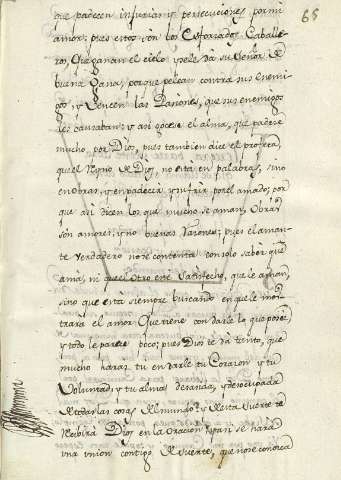 65
que padecen injurias y persecuciones por mi
amor; pues estos son los Esforzados Caballe
ros, que ganan el cielo y se le da su Señor de
buena gana, porque pelean contra sus Enemi
gos, y Vencen las Pasiones, que sus enemigos
les causaban: y asi gocese el alma, que padece
mucho por Dios, pues tambien dice el profeta,
que el Reyno de Dios, no está en palabras, sino
en obras, y en padecer y sufrir por el amado; por
que asi dicen los que mucho se aman, Obras
son amores, y no buenas razones; pues el aman-
te verdadero no se contenta con solo saber que
ama, ni que el otro esté satisfecho, que le aman,
sino que está siempre buscando en que le mos
trará el amor que tiene con darle lo que posee,
y todo le parece poco; pues Dios te da tanto, que
mucho harás tu en darle tu Corazon y tu
Voluntad, y tu alma desasida, y desocupada
de todas las cosas del mundo? y de esta suerte te
recibirá Dios en la oracion, y pan se hará
una union contigo de suerte, que no se conozca